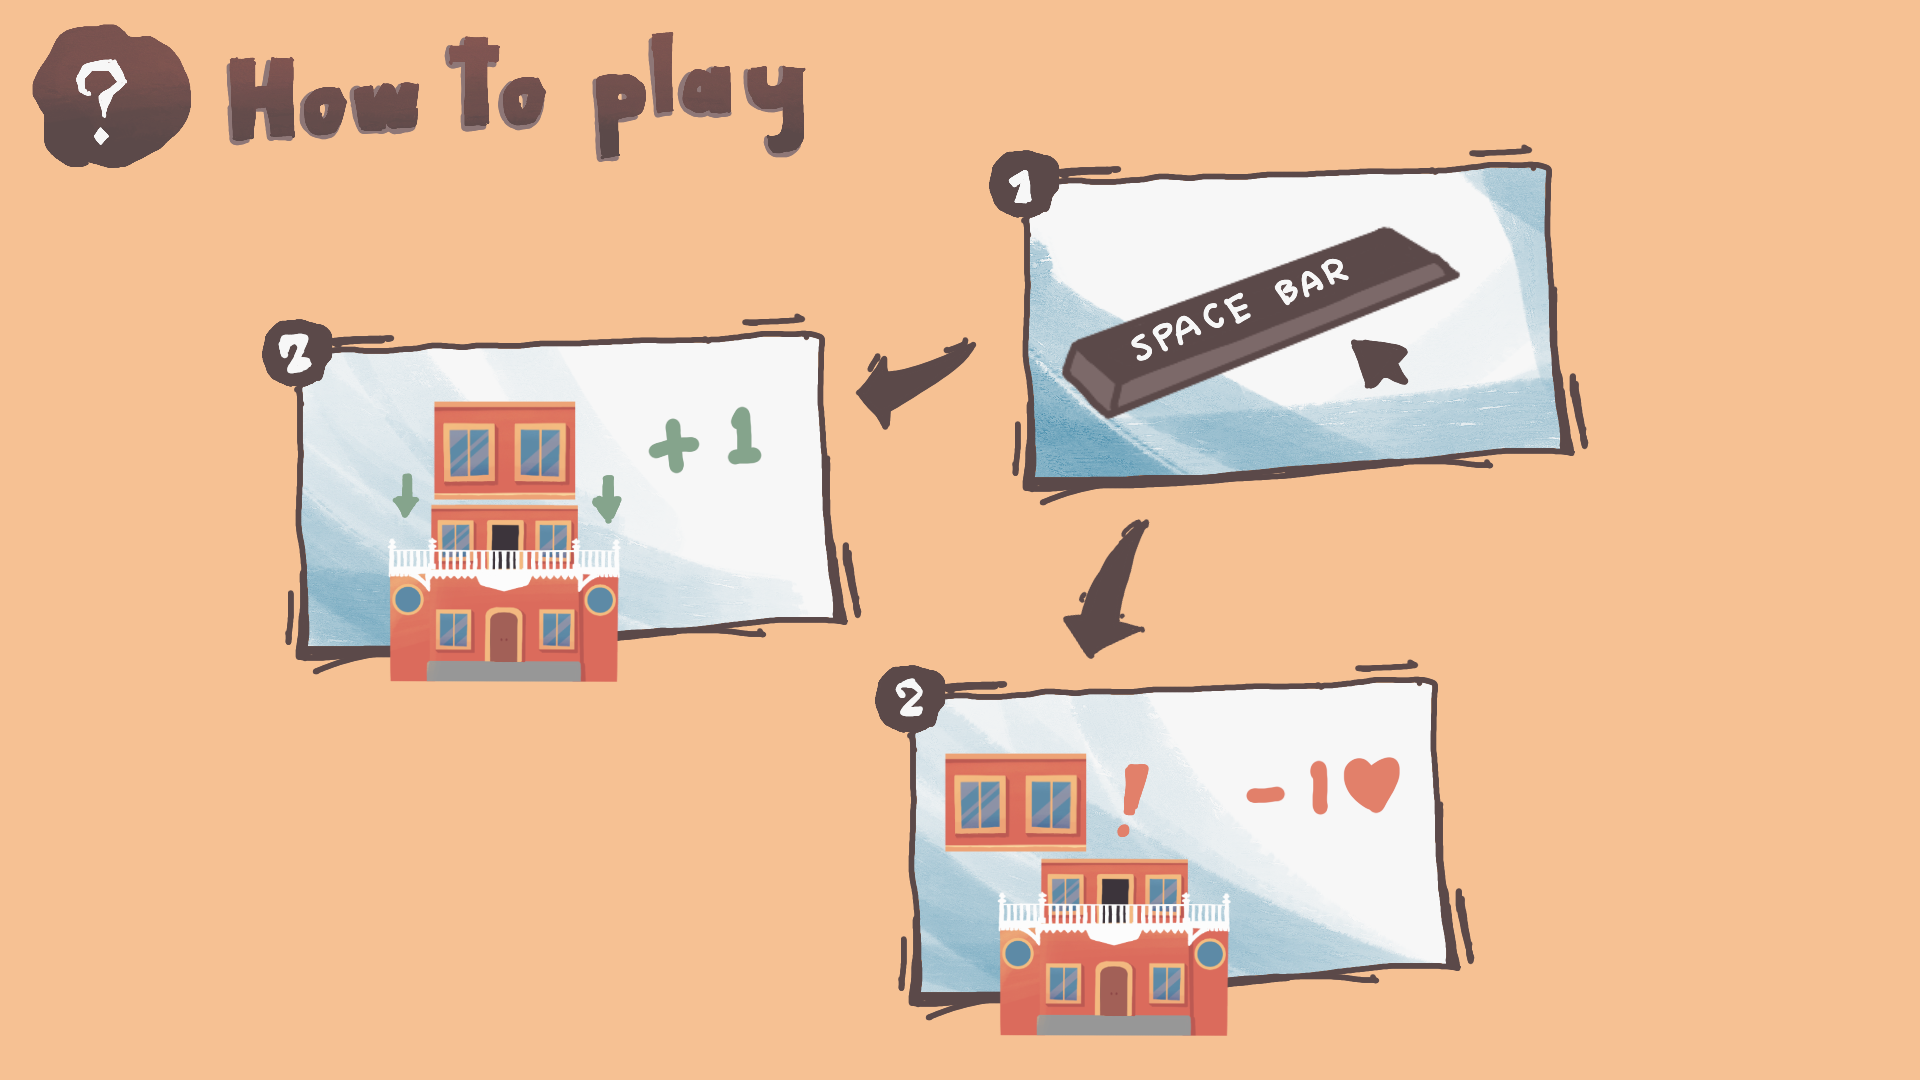 ?
How To play
1
SPACE BAR
2
+ 1
2
! - 1